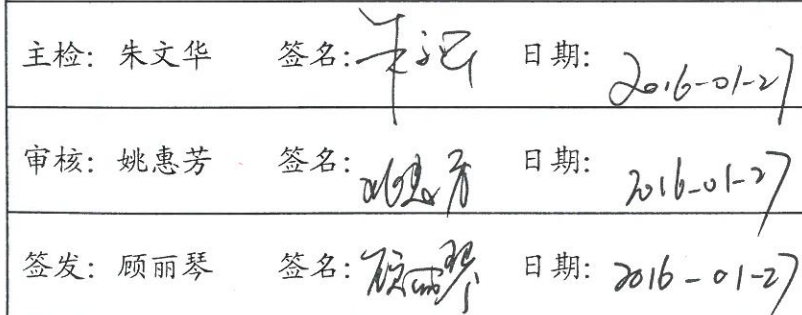 主检: 朱文华 签名: 日期: 2016-01-27
审核: 姚惠芳 签名: 姚惠芳 日期: 2016-01-27
签发: 顾丽琴 签名: 顾丽琴 日期: 2016-01-27